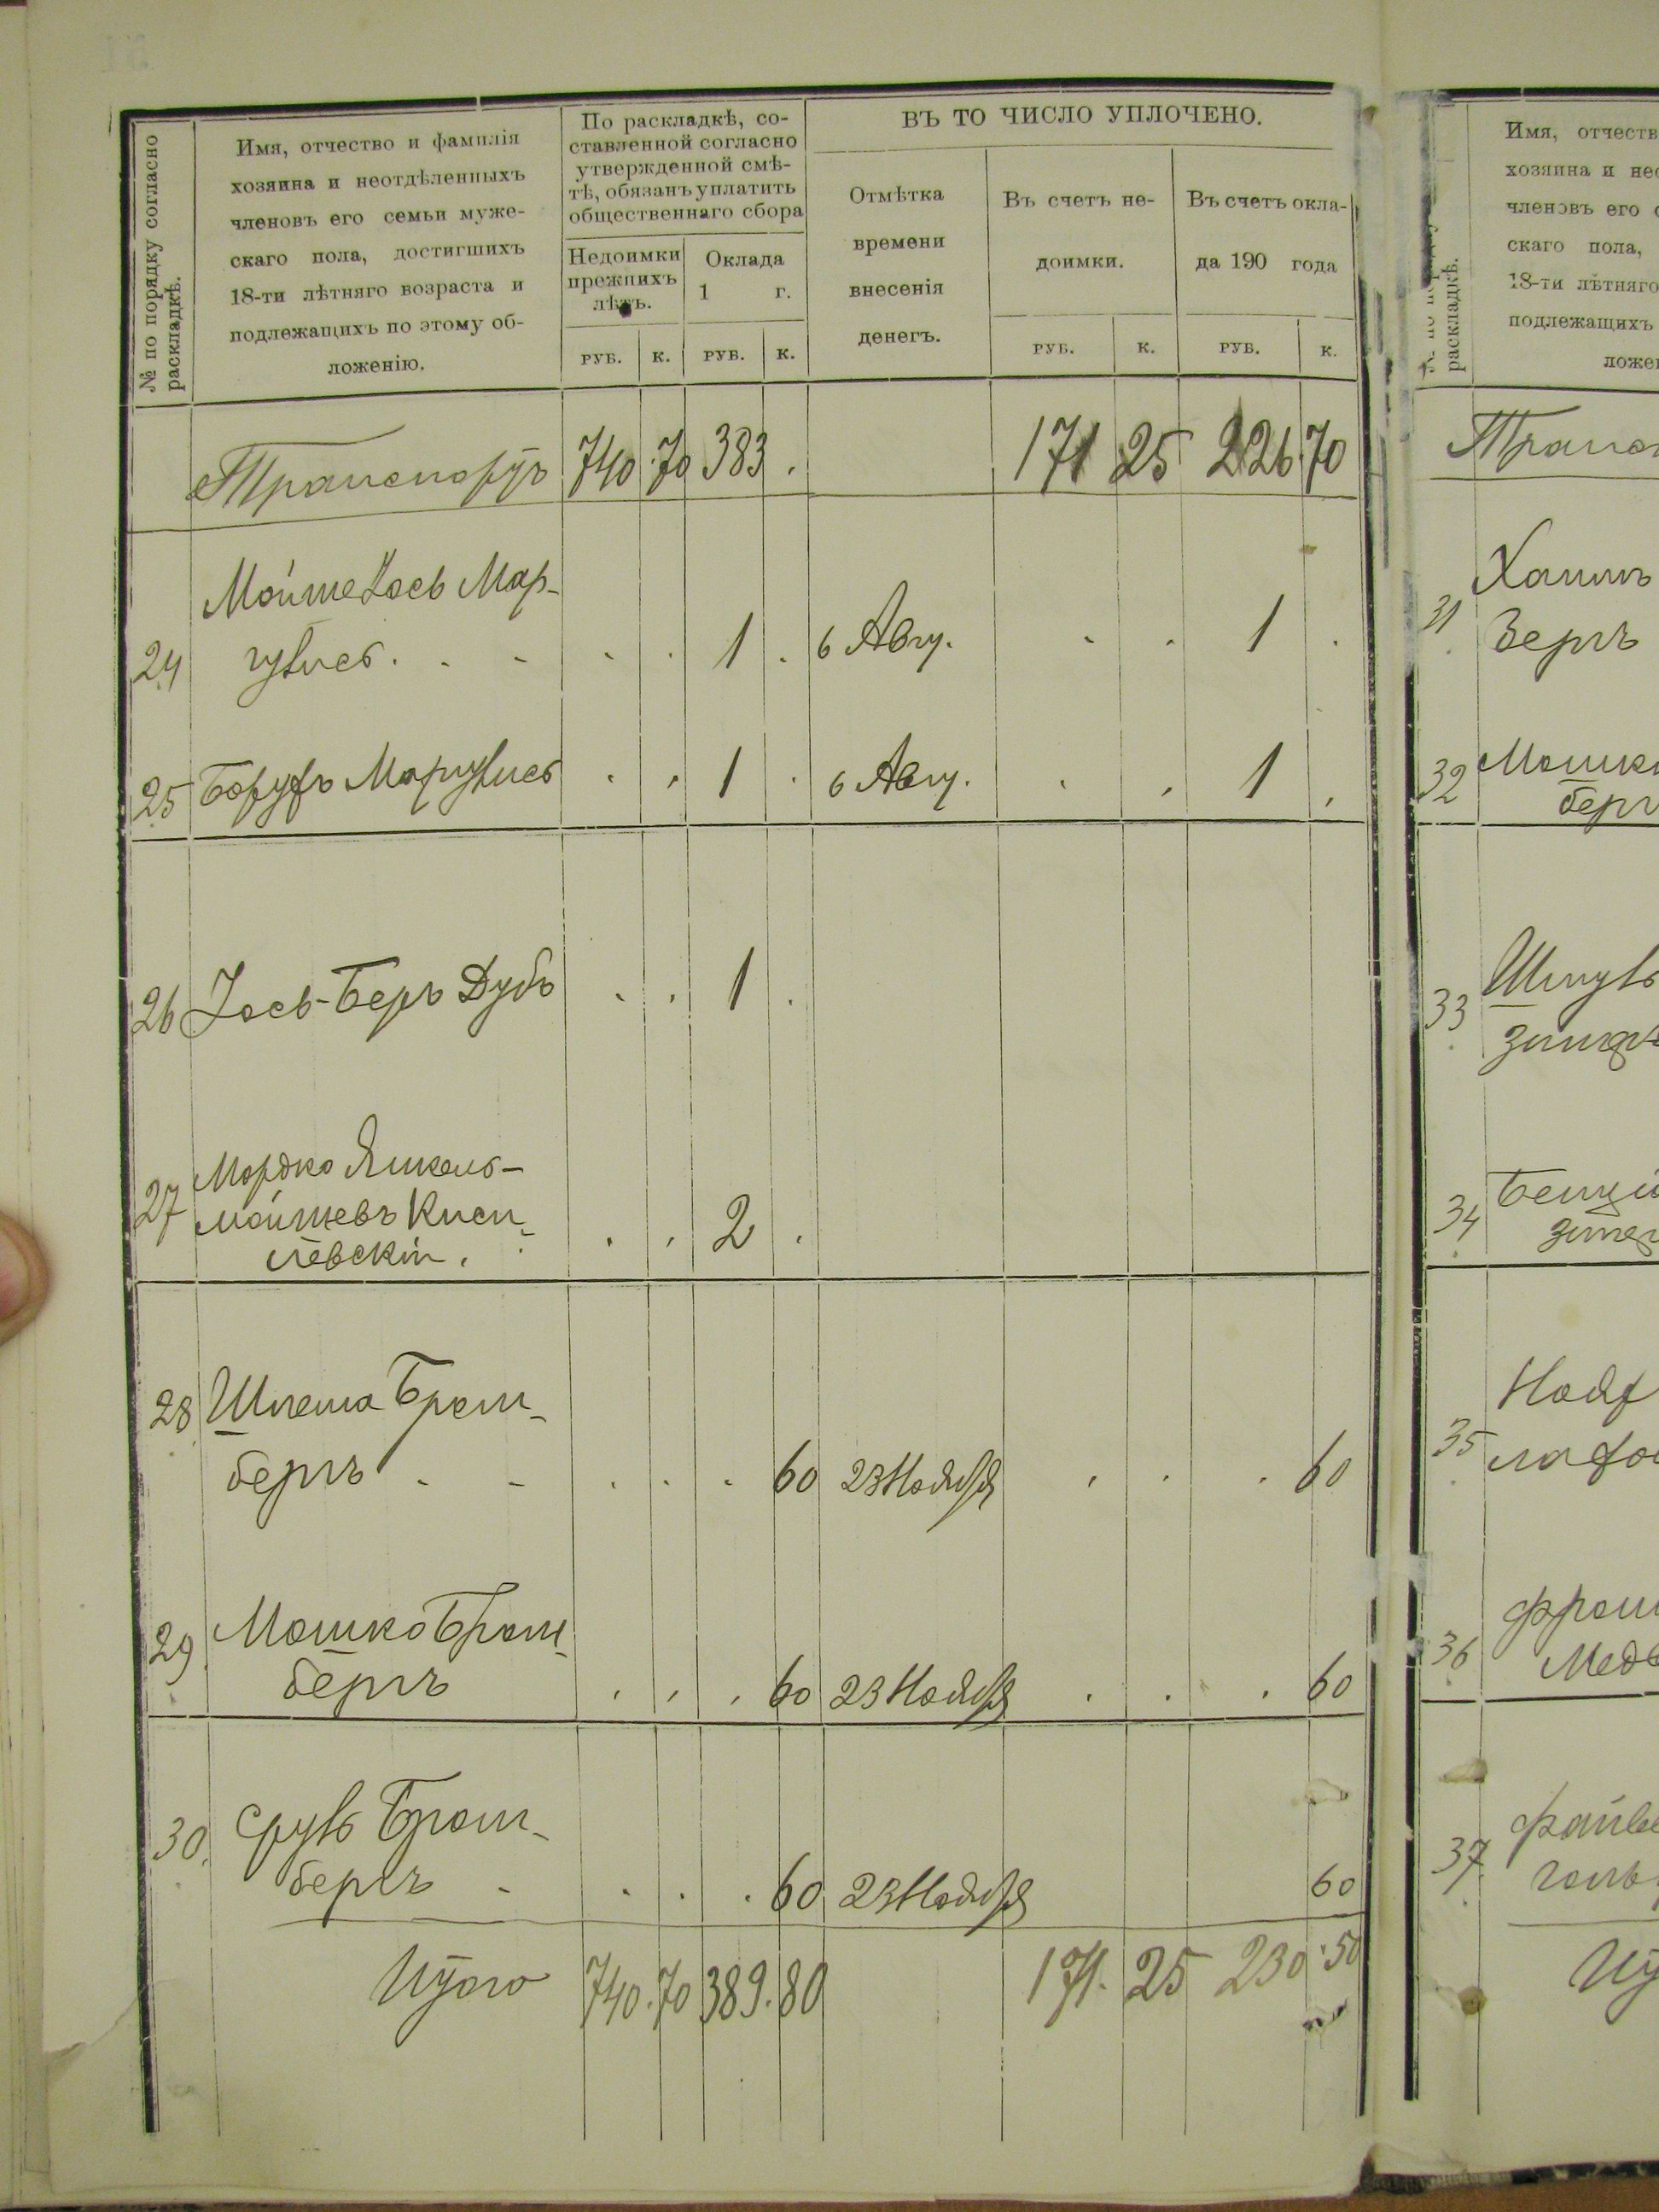 № по порядку согласно
раскладкѣ.
Имя, отчество и фамилія
хозяина и неотдѣленныхъ
членовъ его семьи муже-
скаго пола, достигшихъ
18-ти лѣтняго возраста и
подлежащихъ по этому об-
ложенію.
По раскладкѣ, со-
ставленной согласно
утвержденной смѣ-
тѣ, обязанъ уплатить
общественнаго сбора
Недоимки
прежнихъ
лѣтъ.
Оклада
1 г.
РУБ. К. РУБ. К.
ВЪ ТО ЧИСЛО УПЛОЧЕНО.
Отмѣтка
времени
внесенія
денегъ.
Въ счетъ не-
доимки.
Въ счетъ окла-
да 190 года
РУБ. К. РУБ. К.
Транспортъ 740 70 383 . 171 25 226 70
Мойше Іось Мар-
24 гулисъ . . - . . 1 . 6 Авгу. . . 1 .
25 Борухъ Маргулисъ . . 1 . 6 Авгу. . . 1 .
26 Іось-Беръ Дубъ . . 1 .
Мордко Янкель-
27 Мойшевъ Киси-
левскій . . . 2 .
28 Шлема Бром-
бергъ . - . . . 60 23 Ноября . . . 60
29 Мошко Бром-
бергъ . . . 60 23 Ноября . . . 60
30. Сруль Бром-
бергъ - . . . 60 23 Ноября 60
Итого 740. 70 389. 80 171. 25 230 50
раскладкѣ.
Имя, отчеств
хозяина и не
членовъ его
скаго пола,
18-ти лѣтняго
подлежащихъ
ложе
Транс
31 Хаимъ
Бергъ
32 Мошк
берг
33 Шмуль
34
35
36
Медв
37